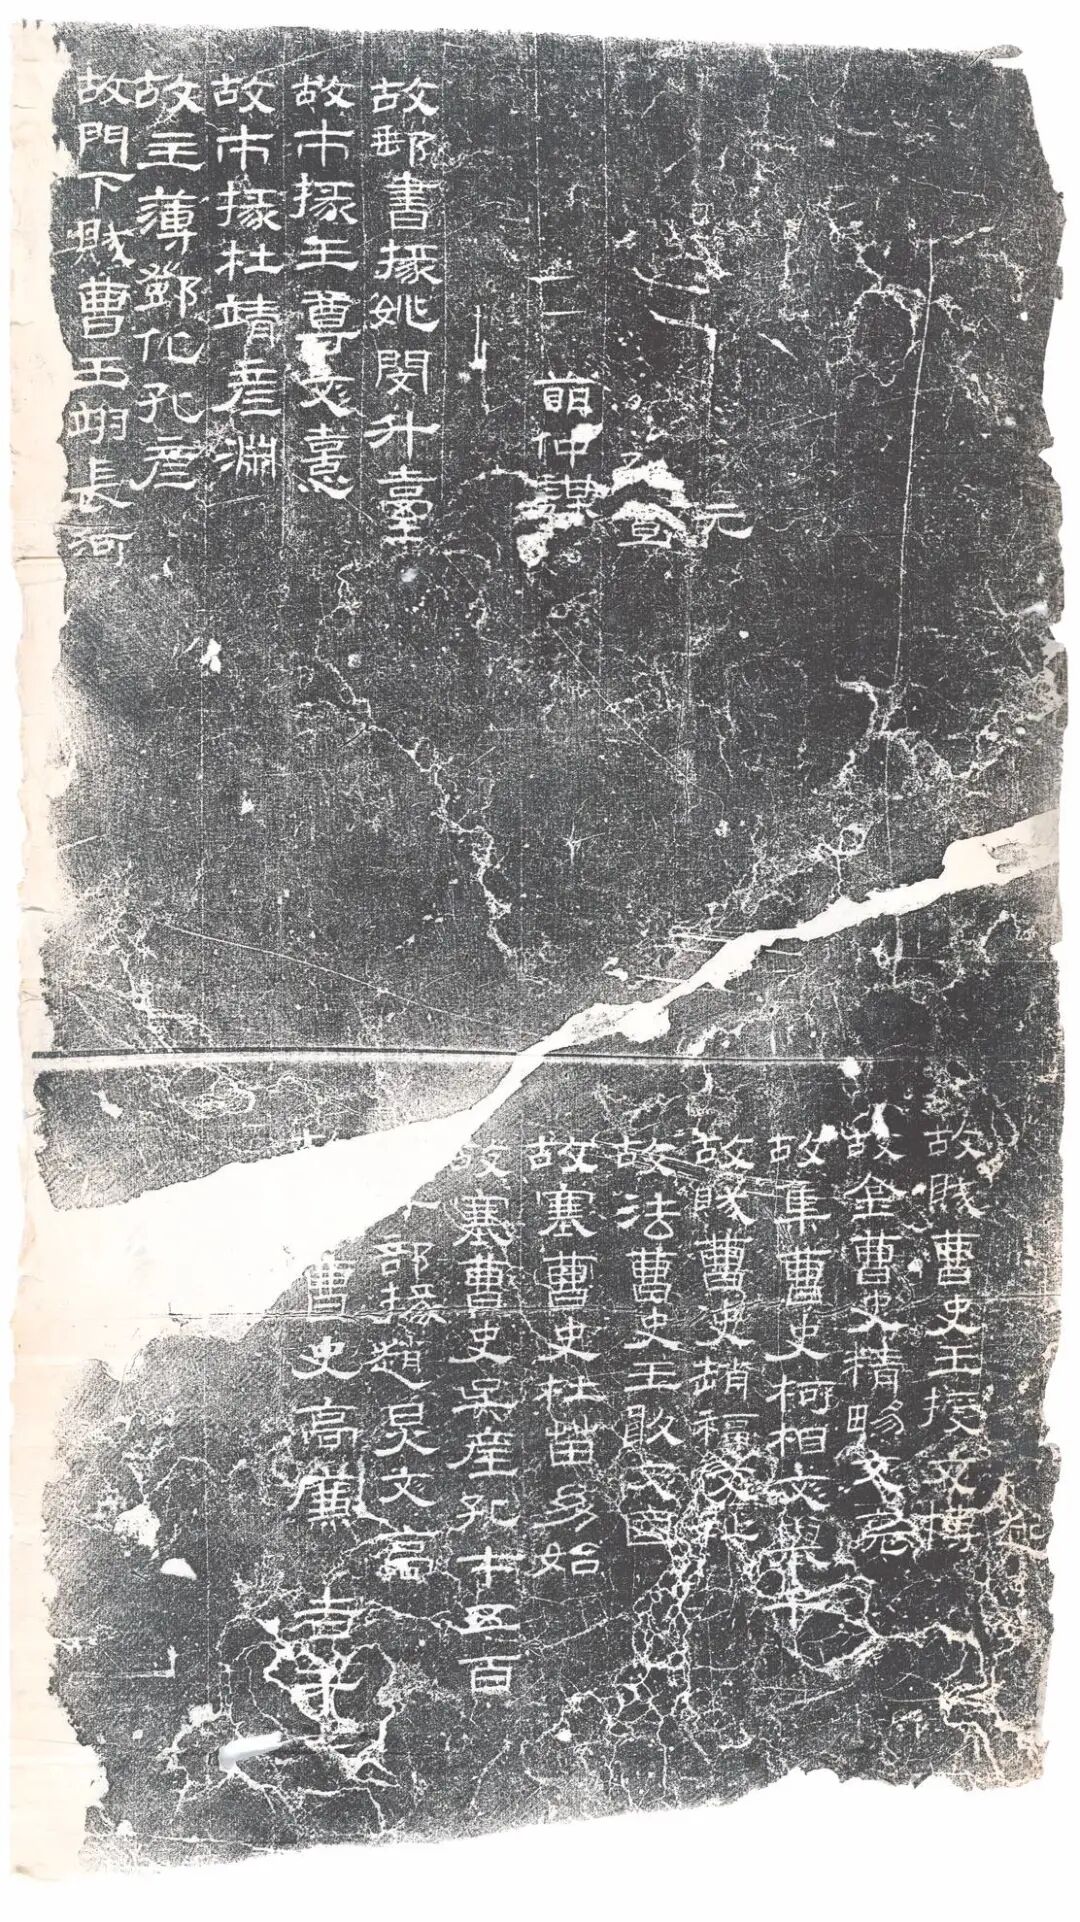 元
宣
萌仲謀
故郵書掾姚閔升臺
故市掾王尊文憙
故市掾杜靖彥淵
故主簿鄧化孔彥
故門下賊曹王翊長河
故賊曹史王授文博
故金曹史精暘文亮
故集曹史柯相文舉千
故賊曹史趙福文祉
故法曹史王敢文國
故塞曹史杜苗幼始
故塞曹史吳產孔才五百
部掾趙炅文高
曹史高廉吉千